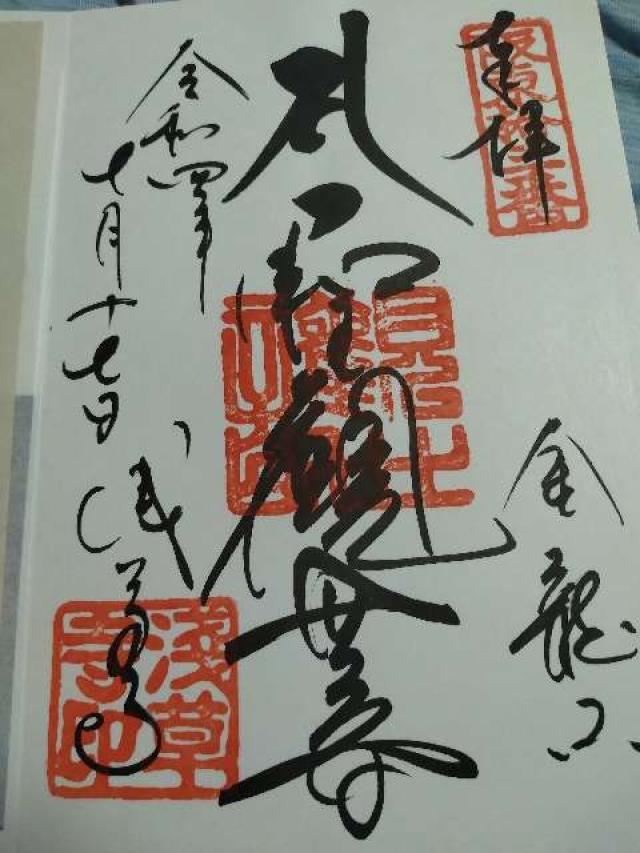 奉拝
坂東拾三番
金龍山
聖観世音
令和四年
七月十七日 浅草寺
淺草寺印